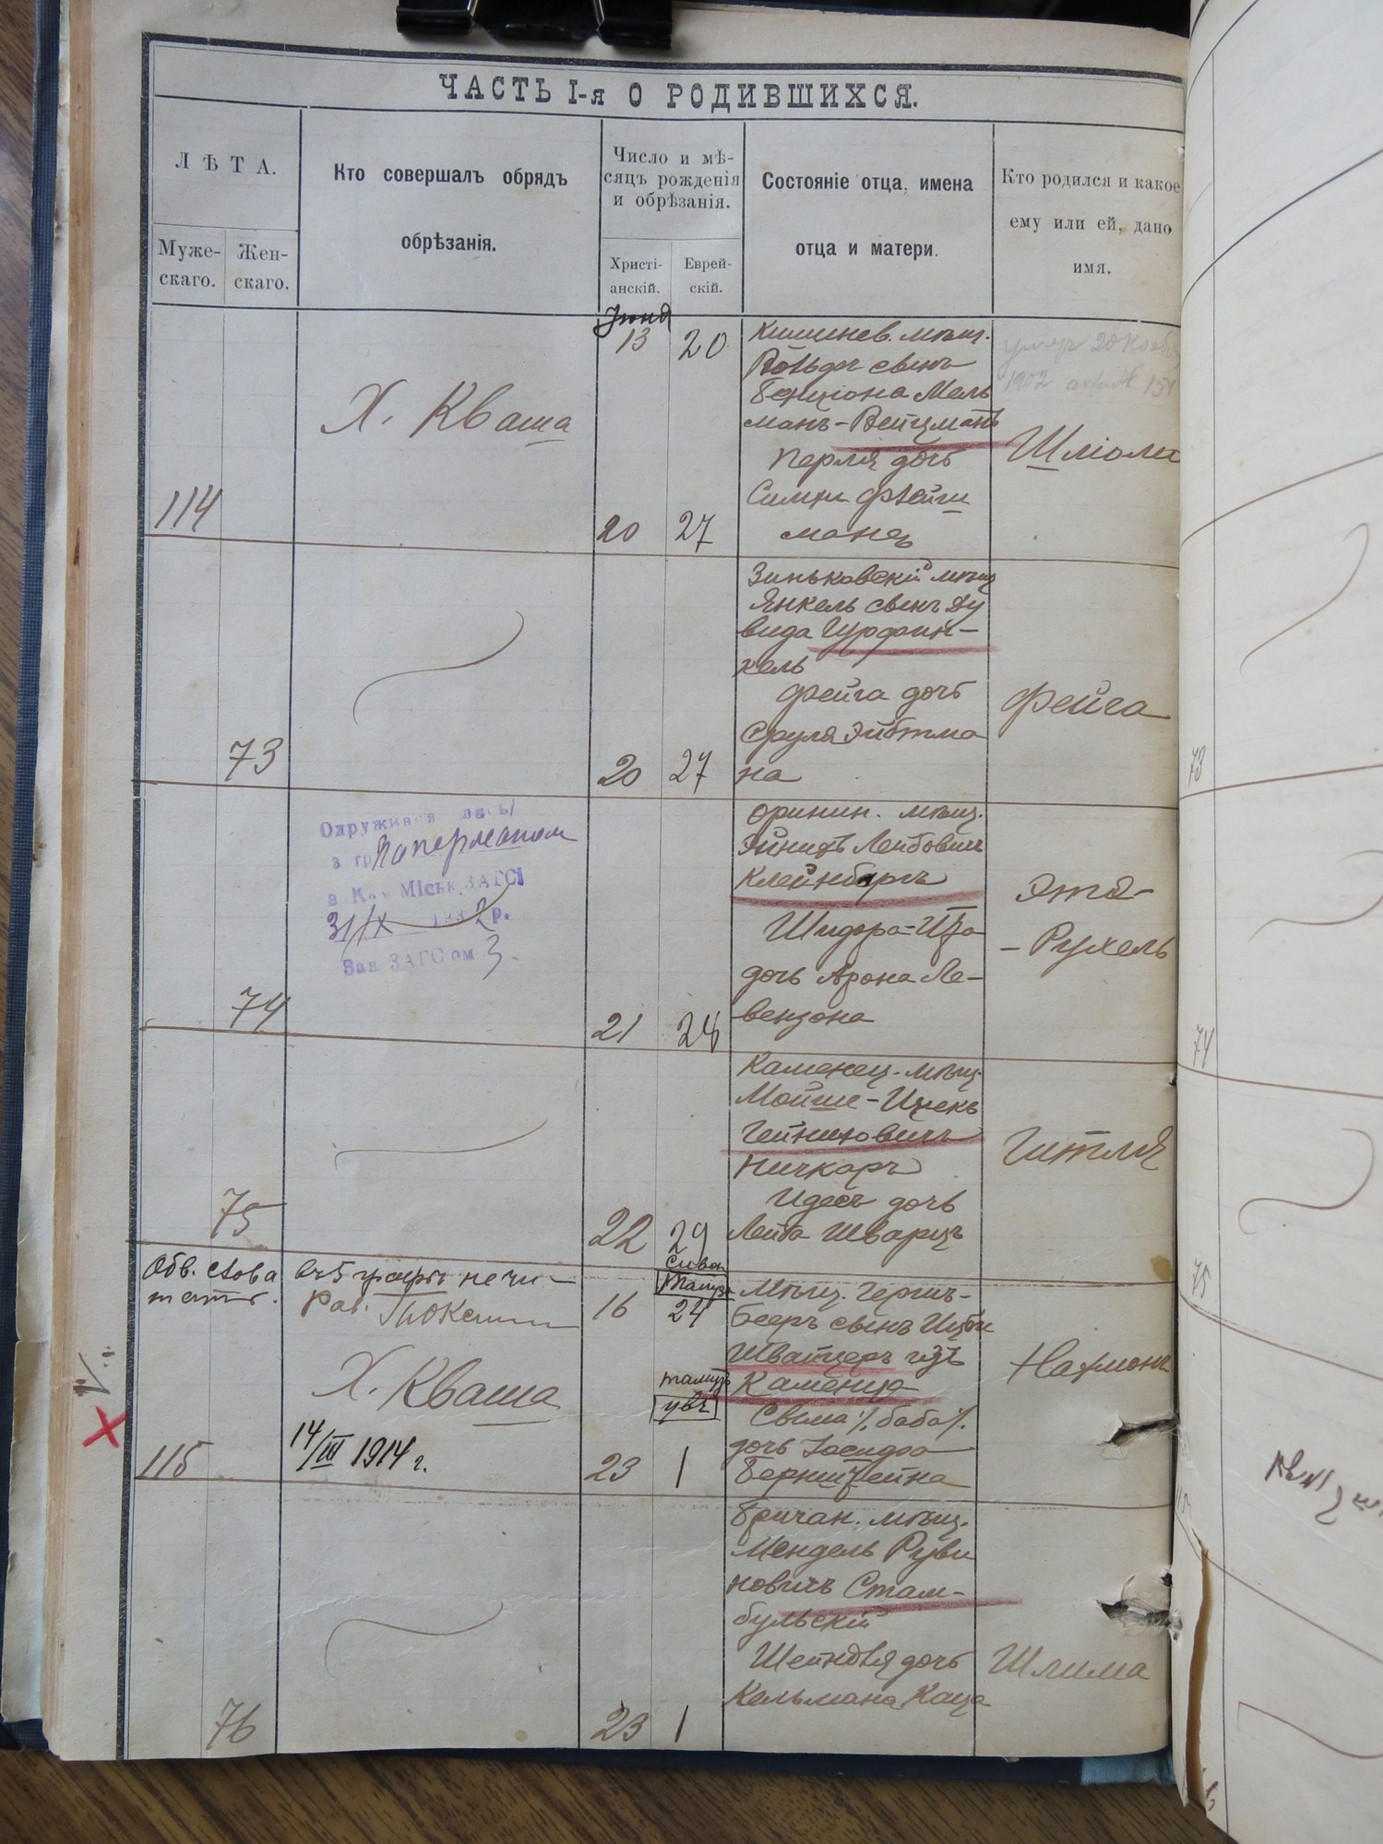 ЧАСТЬ I-я О РОДИВШИХСЯ.
ЛѢТА.
Муже-
скаго.
Жен-
скаго.
Кто совершалъ обрядъ
обрѣзанія.
Число и мѣ-
сяцъ рожденія
и обрѣзанія.
Христі-
анскій.
Еврей-
скій.
Состояніе отца, имена
отца и матери.
Кто родился и какое
ему или ей, дано
имя.
114
Х. Кваша
Іюня
13
20
20
27
Кишинев. мѣщ.
сынъ
Бенціона Мель
манъ-Вейцманъ
Перля дочь
Симхи Флейш
мана
умеръ 20 Ноября
1902 154
Шліома
73
20
27
Зиньковскій мѣщ
Янкель сынъ Ду
вида Гурфин-
кель
Фейга дочь
Сруля Эйбтма
на
Фейга
74
Одружився
з гр. Паперманом
в К. Міськ. ЗАГСІ
31/IX 1932 р.
Зав ЗАГСом
21
28
Оринин. мѣщ.
Эйнихъ Лейбовичъ
Клейнбергъ
Шидфра-Ита
дочь Арона Ле-
вензона
Этя-
-Рухель
75
22
29
Каменец. мѣщ.
Мойше-Ицекъ
Гейниховичъ
Ничкаръ
Идесъ дочь
Лейба Шварцъ
Гитля
Обв. слова въ 5 графѣ не чи-
тать. Рав.
Х. Кваша
14/III 1914 г.
115
16
Сиван
Тамуз
24
тамузъ
23
1
Мѣщ. Гершъ-
Беръ сынъ
Швайцеръ изъ
Каменца
Сыма /. баба /.
дочь Іосифа
Бернштейна
Нахманъ
76
23
1
Бричан. мѣщ.
Мендель Руви
новичъ Стам-
бульскій
Шейндля дочь
Кельмана Каца
Шлима
73
74
75